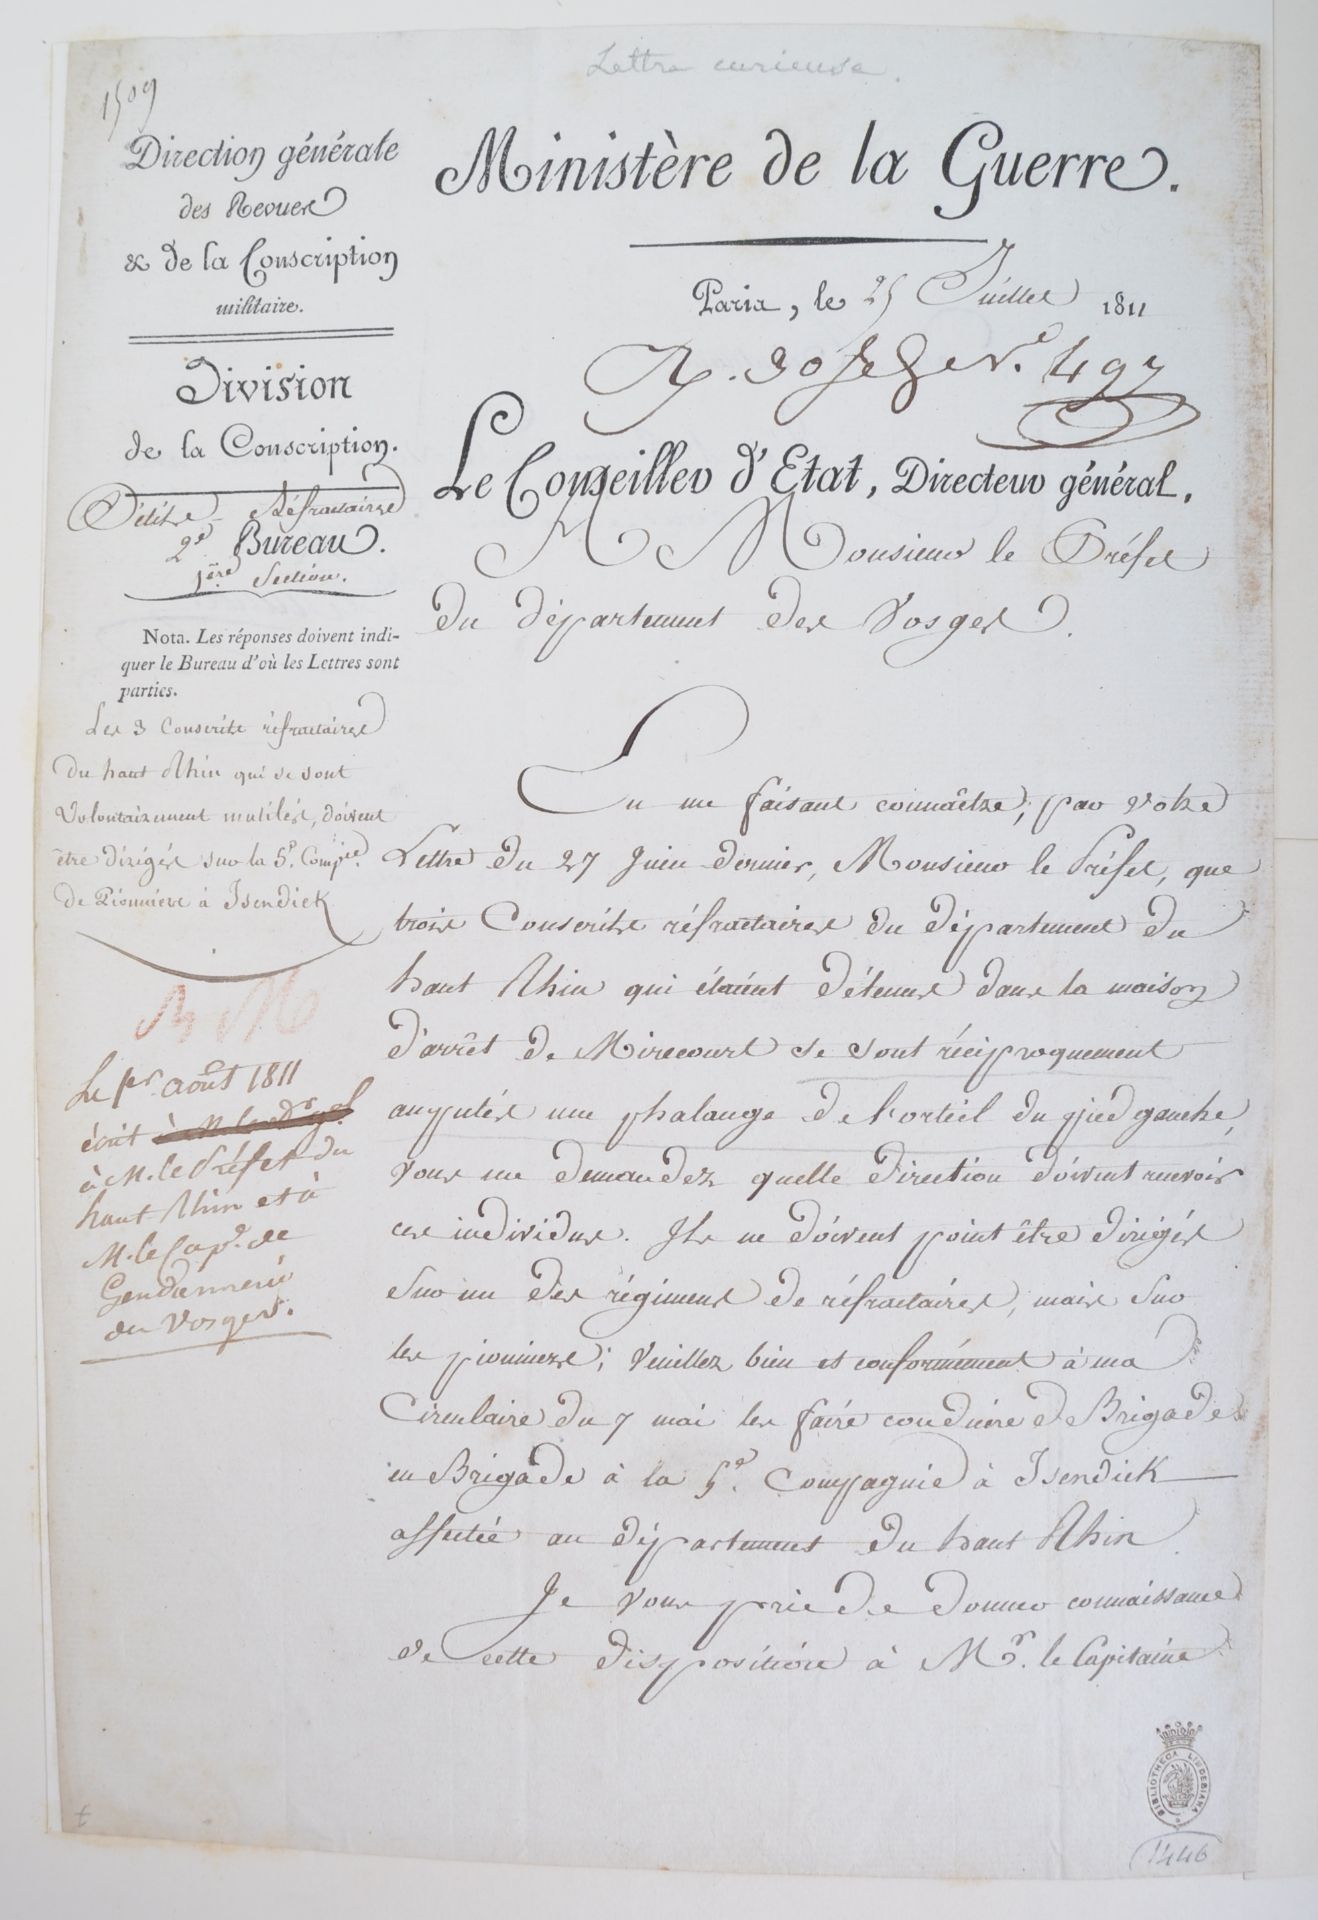 Lettre curieuse.
1509
Direction générale
des Revues
& de la Conscription
militaire.
Division
de la Conscription.
Réfractaires
2e Bureau.
1ère Section.
Nota. Les réponses doivent indi-
quer le Bureau d'où les Lettres sont
parties.
Les 3 Conscrits réfractaires
du haut Rhin qui se sont
Volontairement mutilés, doivent
être dirigés sur la 5e. Compie.
de Pionniers à Isendick
Le 1er. août 1811
écrit
à M. le Préfet du
haut Rhin et à
M. le Cape. de
Gendarmerie
des Vosges.
Ministère de la Guerre.
Paris, le 25 Juillet 1811
R. 30 Je G ne. 497
Le Conseiller d'Etat, Directeur général,
A Monsieur le Préfet
du département des Vosges.
En me faisant connaître, par votre
Lettre du 27 Juin dernier, Monsieur le Préfet, que
trois Conscrits réfractaires du département du
haut Rhin qui étaient détenus dans la maison
d'arrêt de Mirecourt se sont réciproquement
amputés une phalange de l'orteil du pied gauche,
vous me demandez quelle direction doivent recevoir
ces individus. Ils ne doivent point être dirigés
sur un des régimens de réfractaires, mais sur
les pionniers; Veuillez bien et conformément à ma
Circulaire du 7 mai les faire conduire de Brigade
en Brigade à la 5e. Compagnie à Isendick
affectée au département du haut Rhin.
Je vous prie de donner connaissance
de cette disposition à Mr. le Capitaine
BIBLIOTHECA LINDESIANA
1446